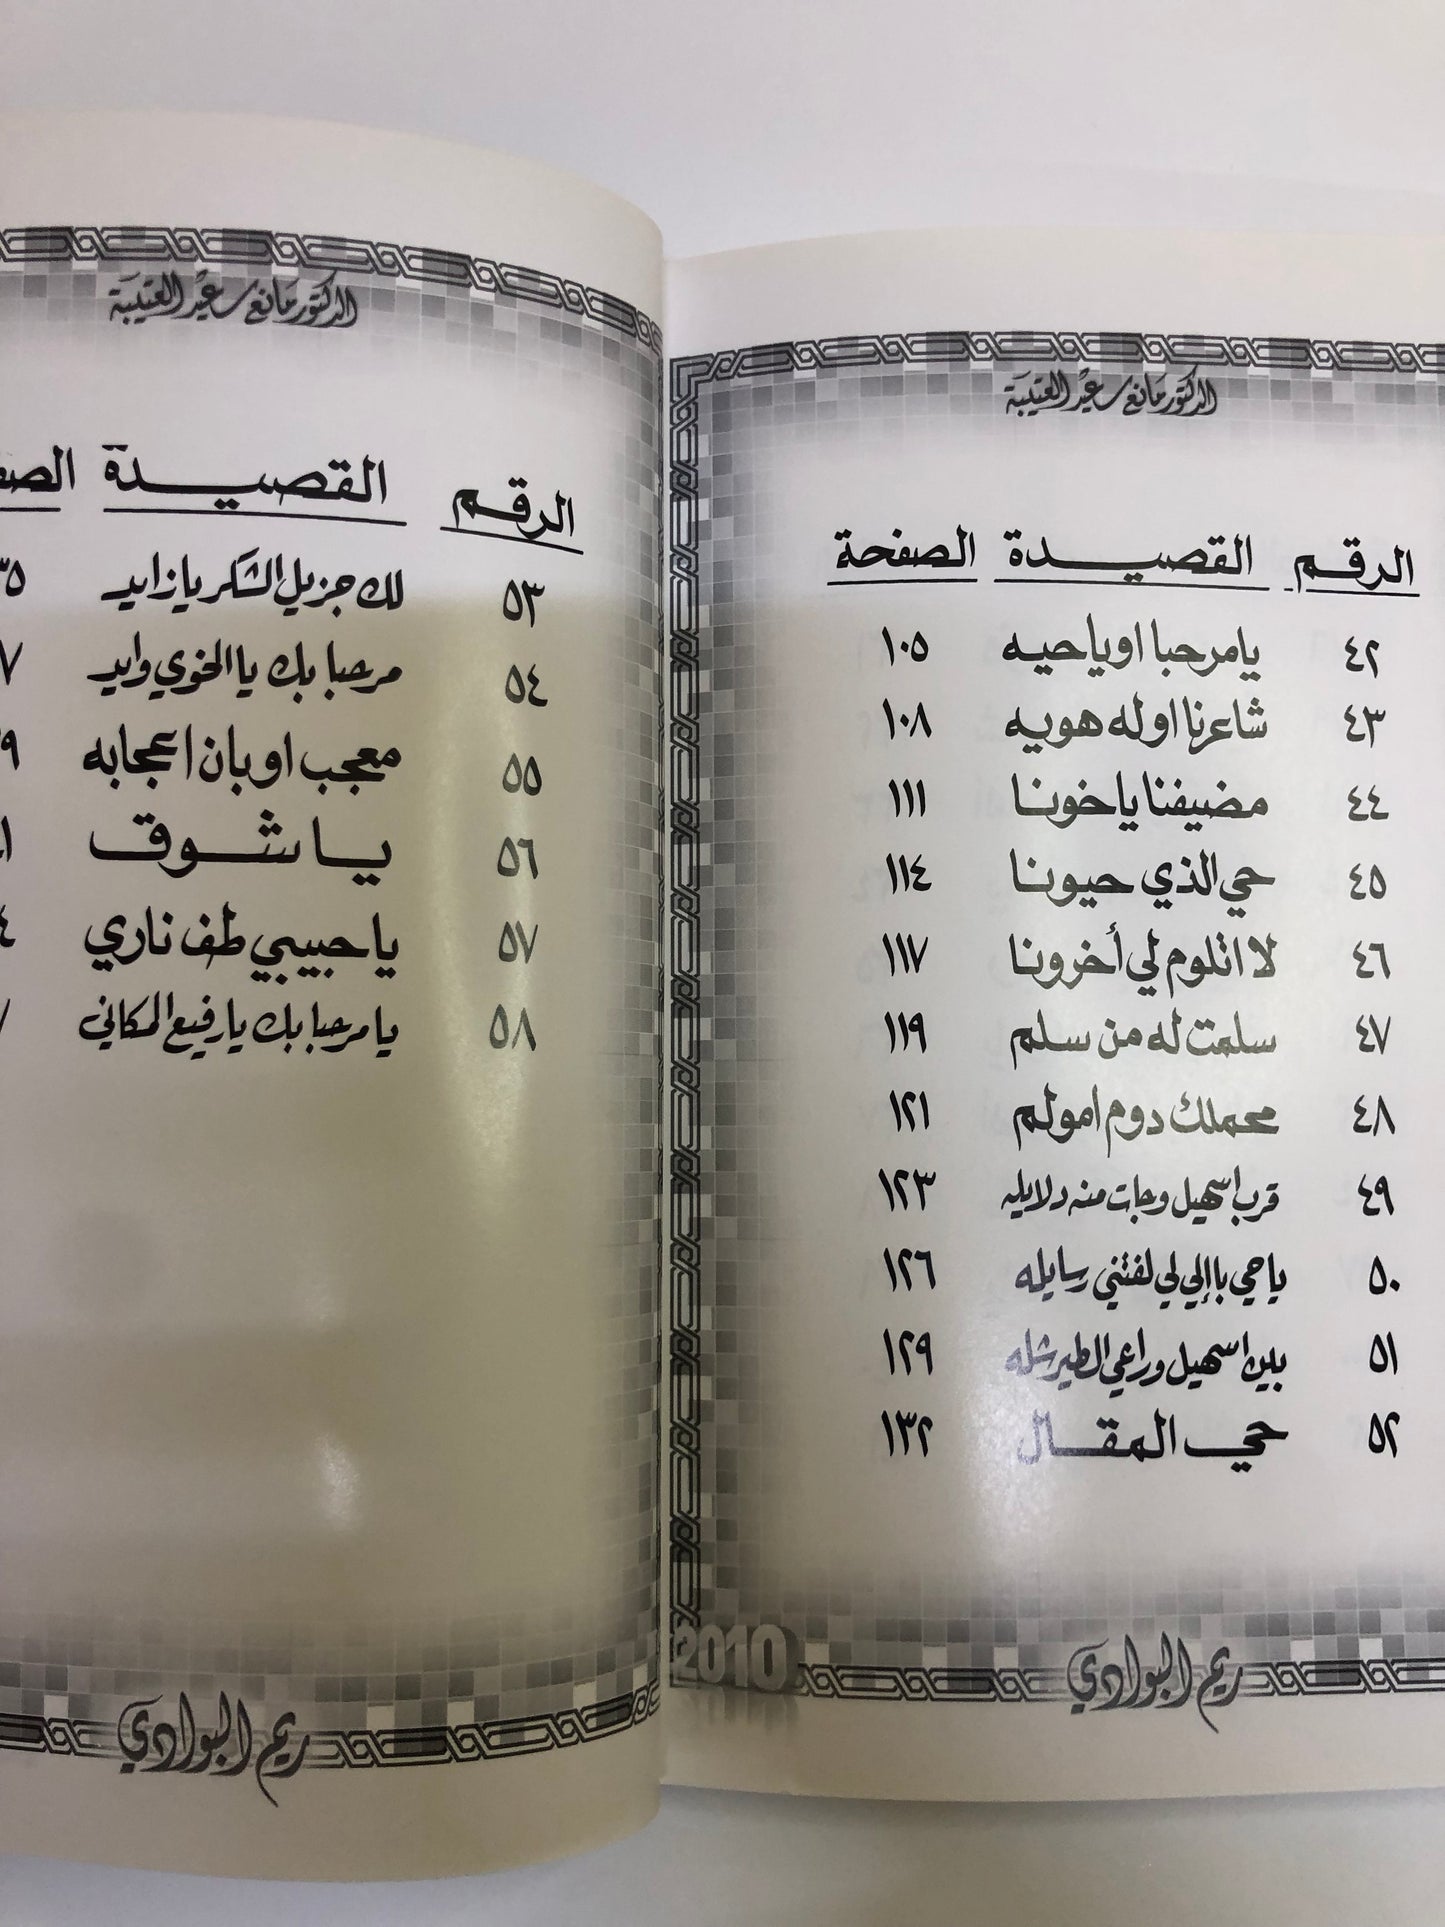 الدكتور مانع سعيد العتيبة
الرقم القصيدة الصفحة
٤٢ يا مرحبا او يا حيه ١٠٥
٤٣ شاعرنا اوله هويه ١٠٨
٤٤ مضيفنا يا خونا ١١١
٤٥ حي الذي حيونا ١١٤
٤٦ لا اتلوم لي أخرونا ١١٧
٤٧ سلمت له من سلم ١١٩
٤٨ محملك دوم امولم ١٢١
٤٩ قرب اسهيل وجات منه دلايله ١٢٣
٥٠ يا حي باإلي لي لفتني رسايله ١٢٦
٥١ بين اسهيل وراعي الطير شله ١٢٩
٥٢ حي المقال ١٣٢
ريم البوادي
2010
الدكتور مانع سعيد العتيبة
الرقم القصيدة
٥٣ لك جزيل الشكر يا زايد
٥٤ مرحبا بك يا الخوي وايد
٥٥ معجب او بان اعجابه
٥٦ يا شوق
٥٧ يا حبيبي طف ناري
٥٨ يا مرحبا بك يا رفيع المكاني
ريم البوادي